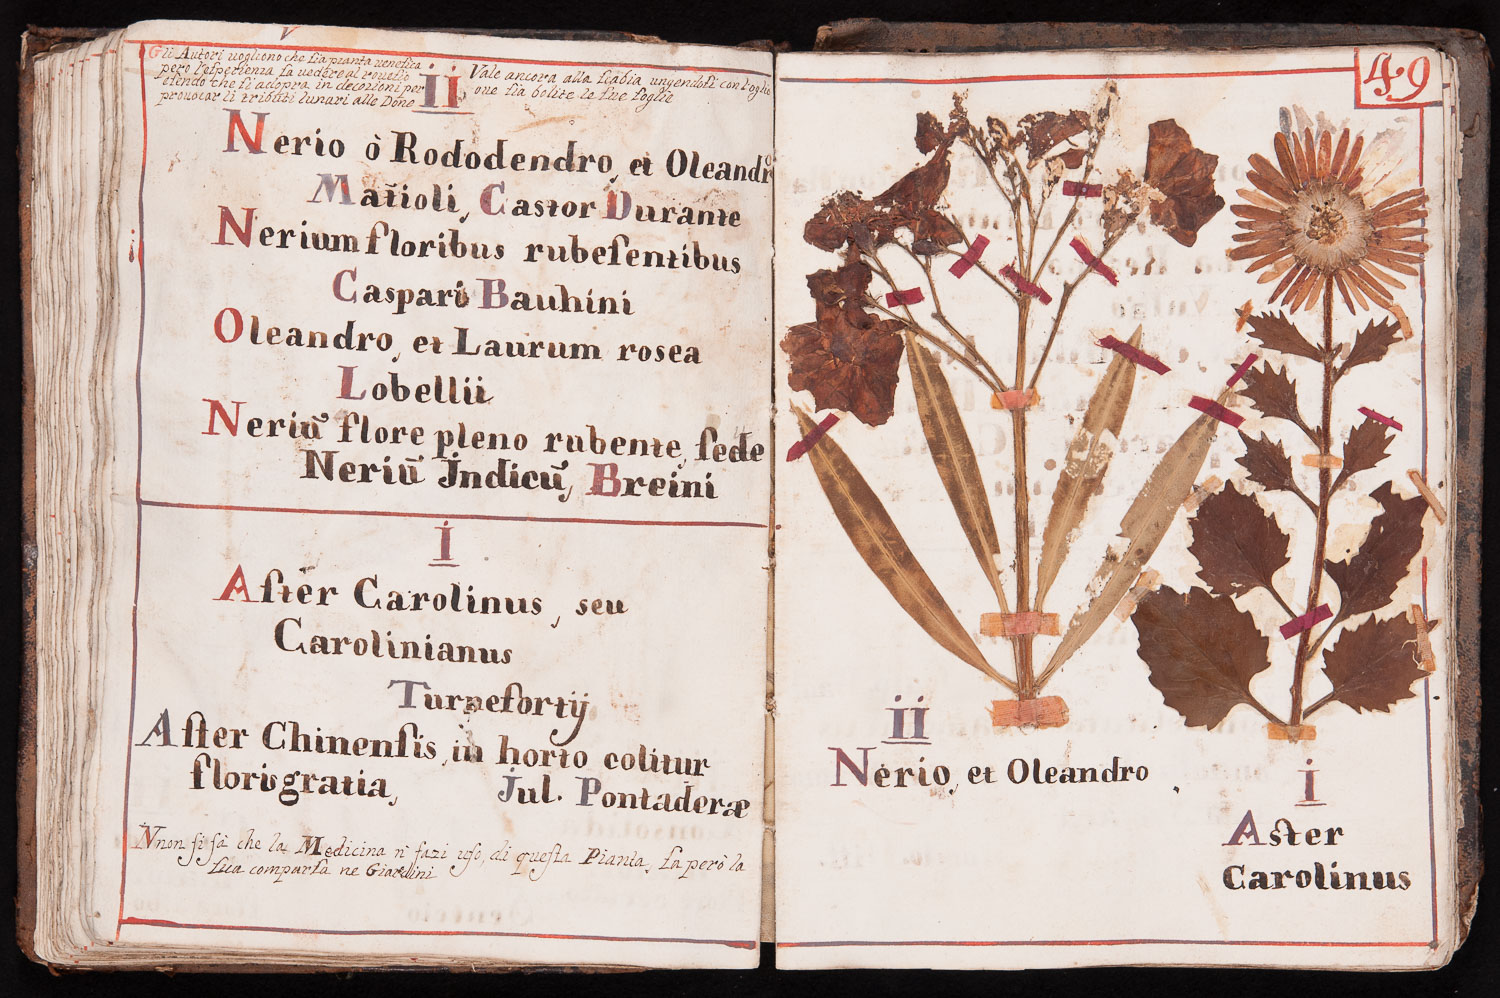 Gli Autori vogliono che sia pianta venefica
però l'esperienza fa vedere al rovescio
essendo che si adopra in decozioni per
provocar li tributi lunari alle Done
ii
Vale ancora alla scabia ungendosi con l'oglio
ove sia bolite le sue foglie
Nerio ò Rododendro, et Oleandrº
Matioli, Castor Durante
Nerium floribus rubesentibus
Caspari Bauhini
Oleandro, et Laurum rosea
Lobellii
Neriū flore pleno rubente, sede
Neriū Jndicū, Breini
i
Aster Carolinus, seu
Carolinianus
Turnefortij
Aster Chinensis, in horto colitur
floris gratia, Jul. Pontaderæ
Nnon si sà che la Medicina n' fazi uso, di questa Pianta, fa però la
sua comparsa ne Giardini
49
ii
Nerio, et Oleandro
i
Aster
Carolinus